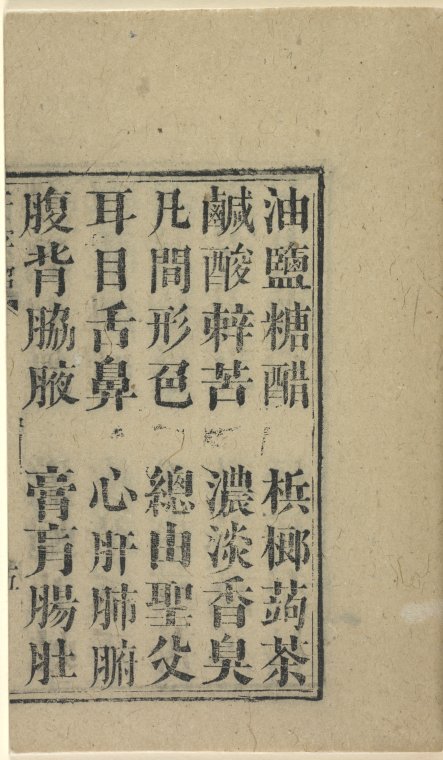 油鹽糖醋　梹榔蒟茶
鹹酸辢苦　濃淡香臭
凡間形色　總由聖父
耳目舌鼻　心肝肺腑
腹背脇腋　膏肓腸肚